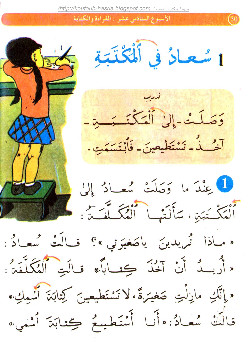 الأسبوع السادس عشر - القراءة والكتابة
1 سُعادُ فِي الْمَكْتَبَةِ
وَصَلَتْ - إِلَى الْمَكْتَبَةِ -
آخُذُ - تَسْتَطيعينَ - فَابْتَسَمَتْ
1 عِنْدَ ما وَصَلَتْ سُعادُ إِلَى
الْمَكْتَبَةِ، سَأَلَتْها الْمُكَلَّفَةُ:
- ماذا تُريدينَ يا صَغيرَتي؟ قالَتْ سُعادُ:
«أُريدُ أَنْ آخُذَ كِتاباً» قالَتِ الْمُكَلَّفَةُ:
«إِنَّكِ مازِلْتِ صَغيرَةً، لا تَسْتَطيعينَ كِتابَةَ اسْمِكِ»
قالَتْ سُعادُ: «أَنا أَسْتَطيعُ كِتابَةَ اسْمي»